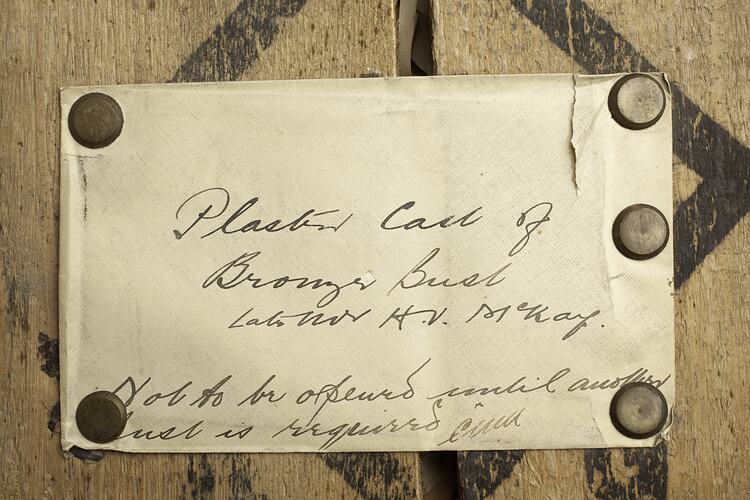 Plaster Cast of
Bronze Bust
Late Mr H.V. McKay.
Not to be opened until another
bust is required